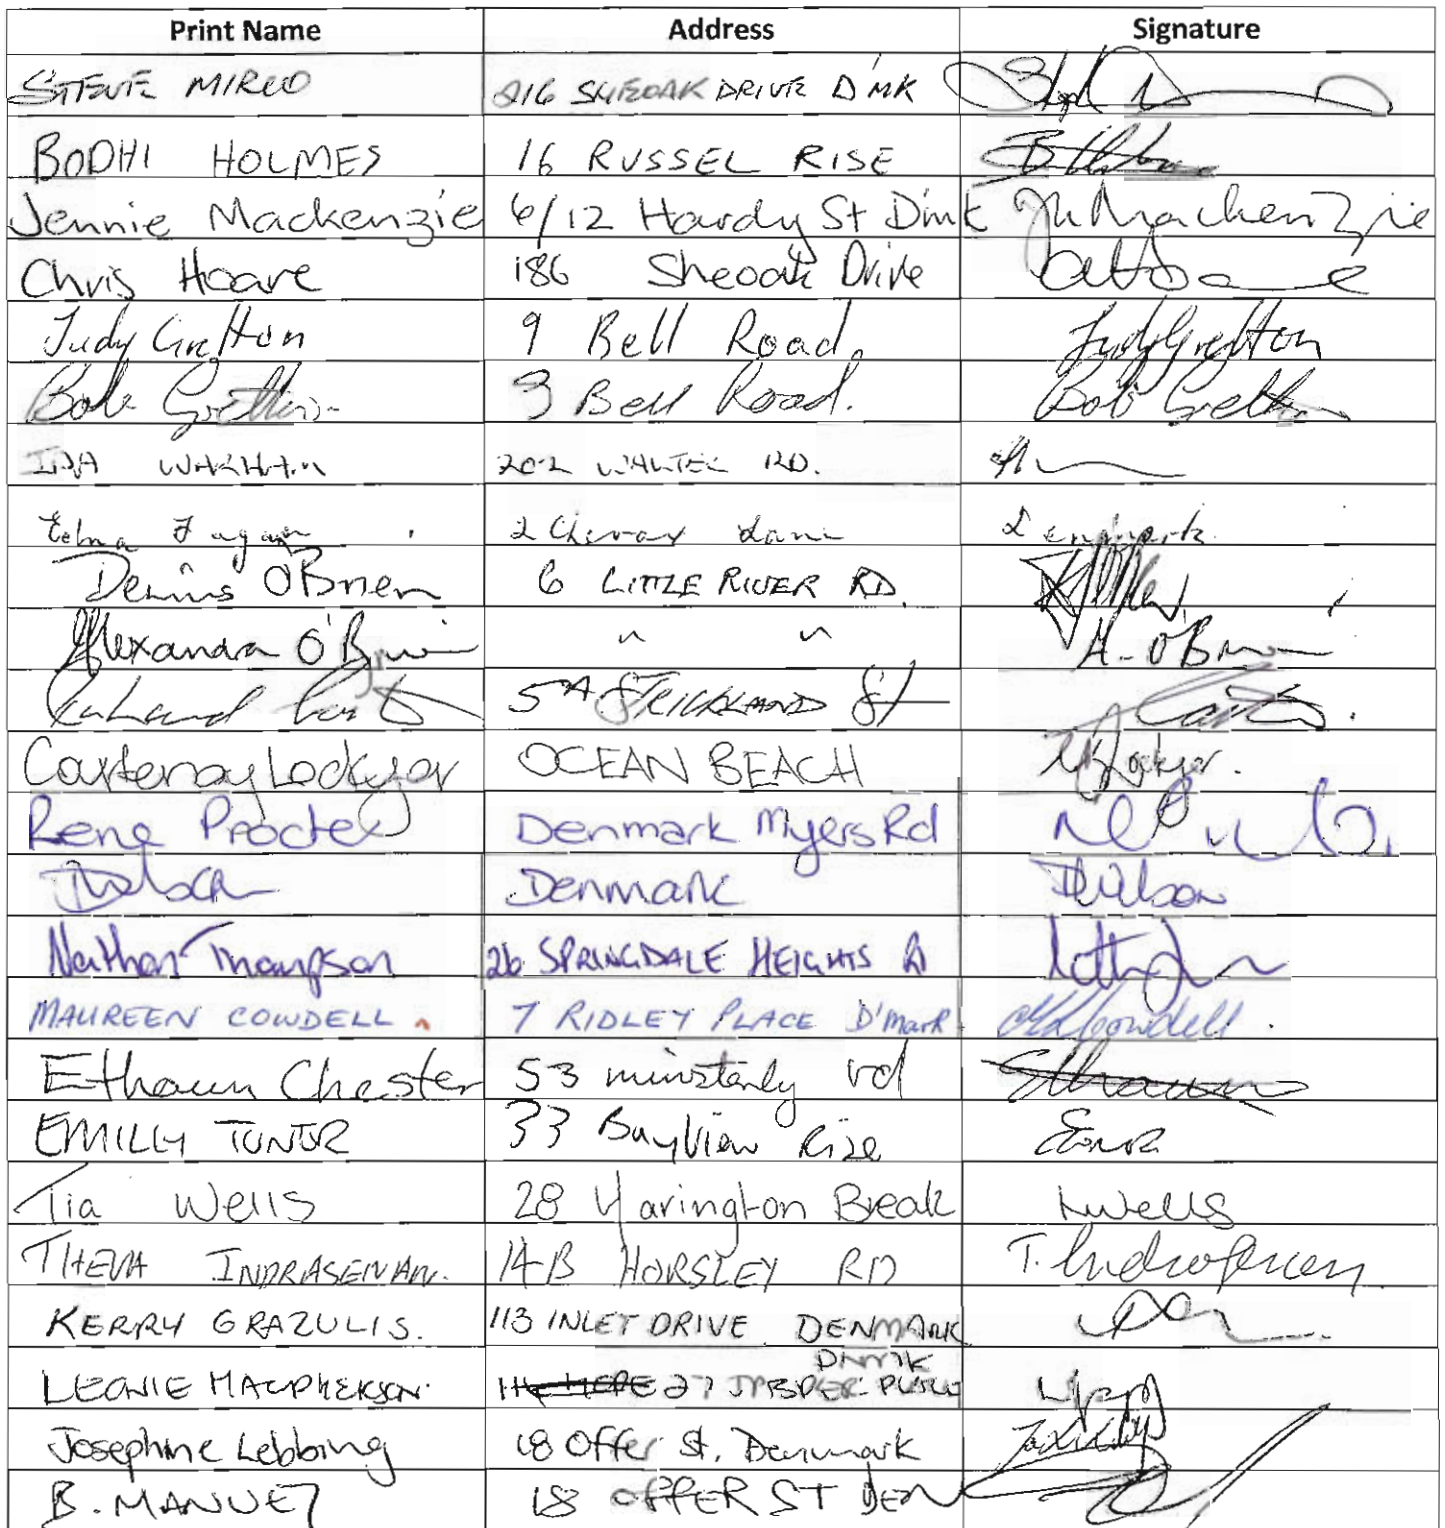 Print Name Address Signature
STEVE MIRCO 216 SHEOAK DRIVE D'MK
BODHI HOLMES 16 RUSSEL RISE
Jennie Mackenzie 6/12 Hardy St D'mk JMackenzie
Chris Hoare 186 Sheoak Drive
Judy Gretton 9 Bell Road. Judy Gretton
Bob Gretton 9 Bell Road. Bob Gretton
IDA WAKHAM 202 WALTER RD.
Edna Fagan 2 Lane Denmark.
Dennis O'Brien 6 LITTLE RIVER RD.
Alexandra O'Brien " " A. O'Brien
5A STRICKLAND St
Courtenay Lockyer OCEAN BEACH Lockyer.
Rene Procter Denmark Myers Rd
Denmark DWilson
Nathan Thompson 26 SPRINGDALE HEIGHTS
MAUREEN COWDELL 7 RIDLEY PLACE D'mark Cowdell.
Ethaun Chester 53 minstanly rd Ethaun
EMILLY TUNER 33 BayView Rise
Tia Wells 28 Yarington Break twells
THEVA INDRASENAN. 14B HORSLEY RD T. Indrasenan
KERRY GRAZULIS. 113 INLET DRIVE DENMARK
DNMK
LEONIE MACPHERSON. 27 JASPER PLACE
Josephine Lebbing 18 Offer St. Denmark
B. MANUEL 18 OFFER ST DEN